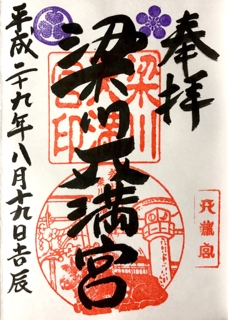 奉拝
梁川天満宮
平成二十九年八月十九日吉辰
梁川天満宮印
天満宮